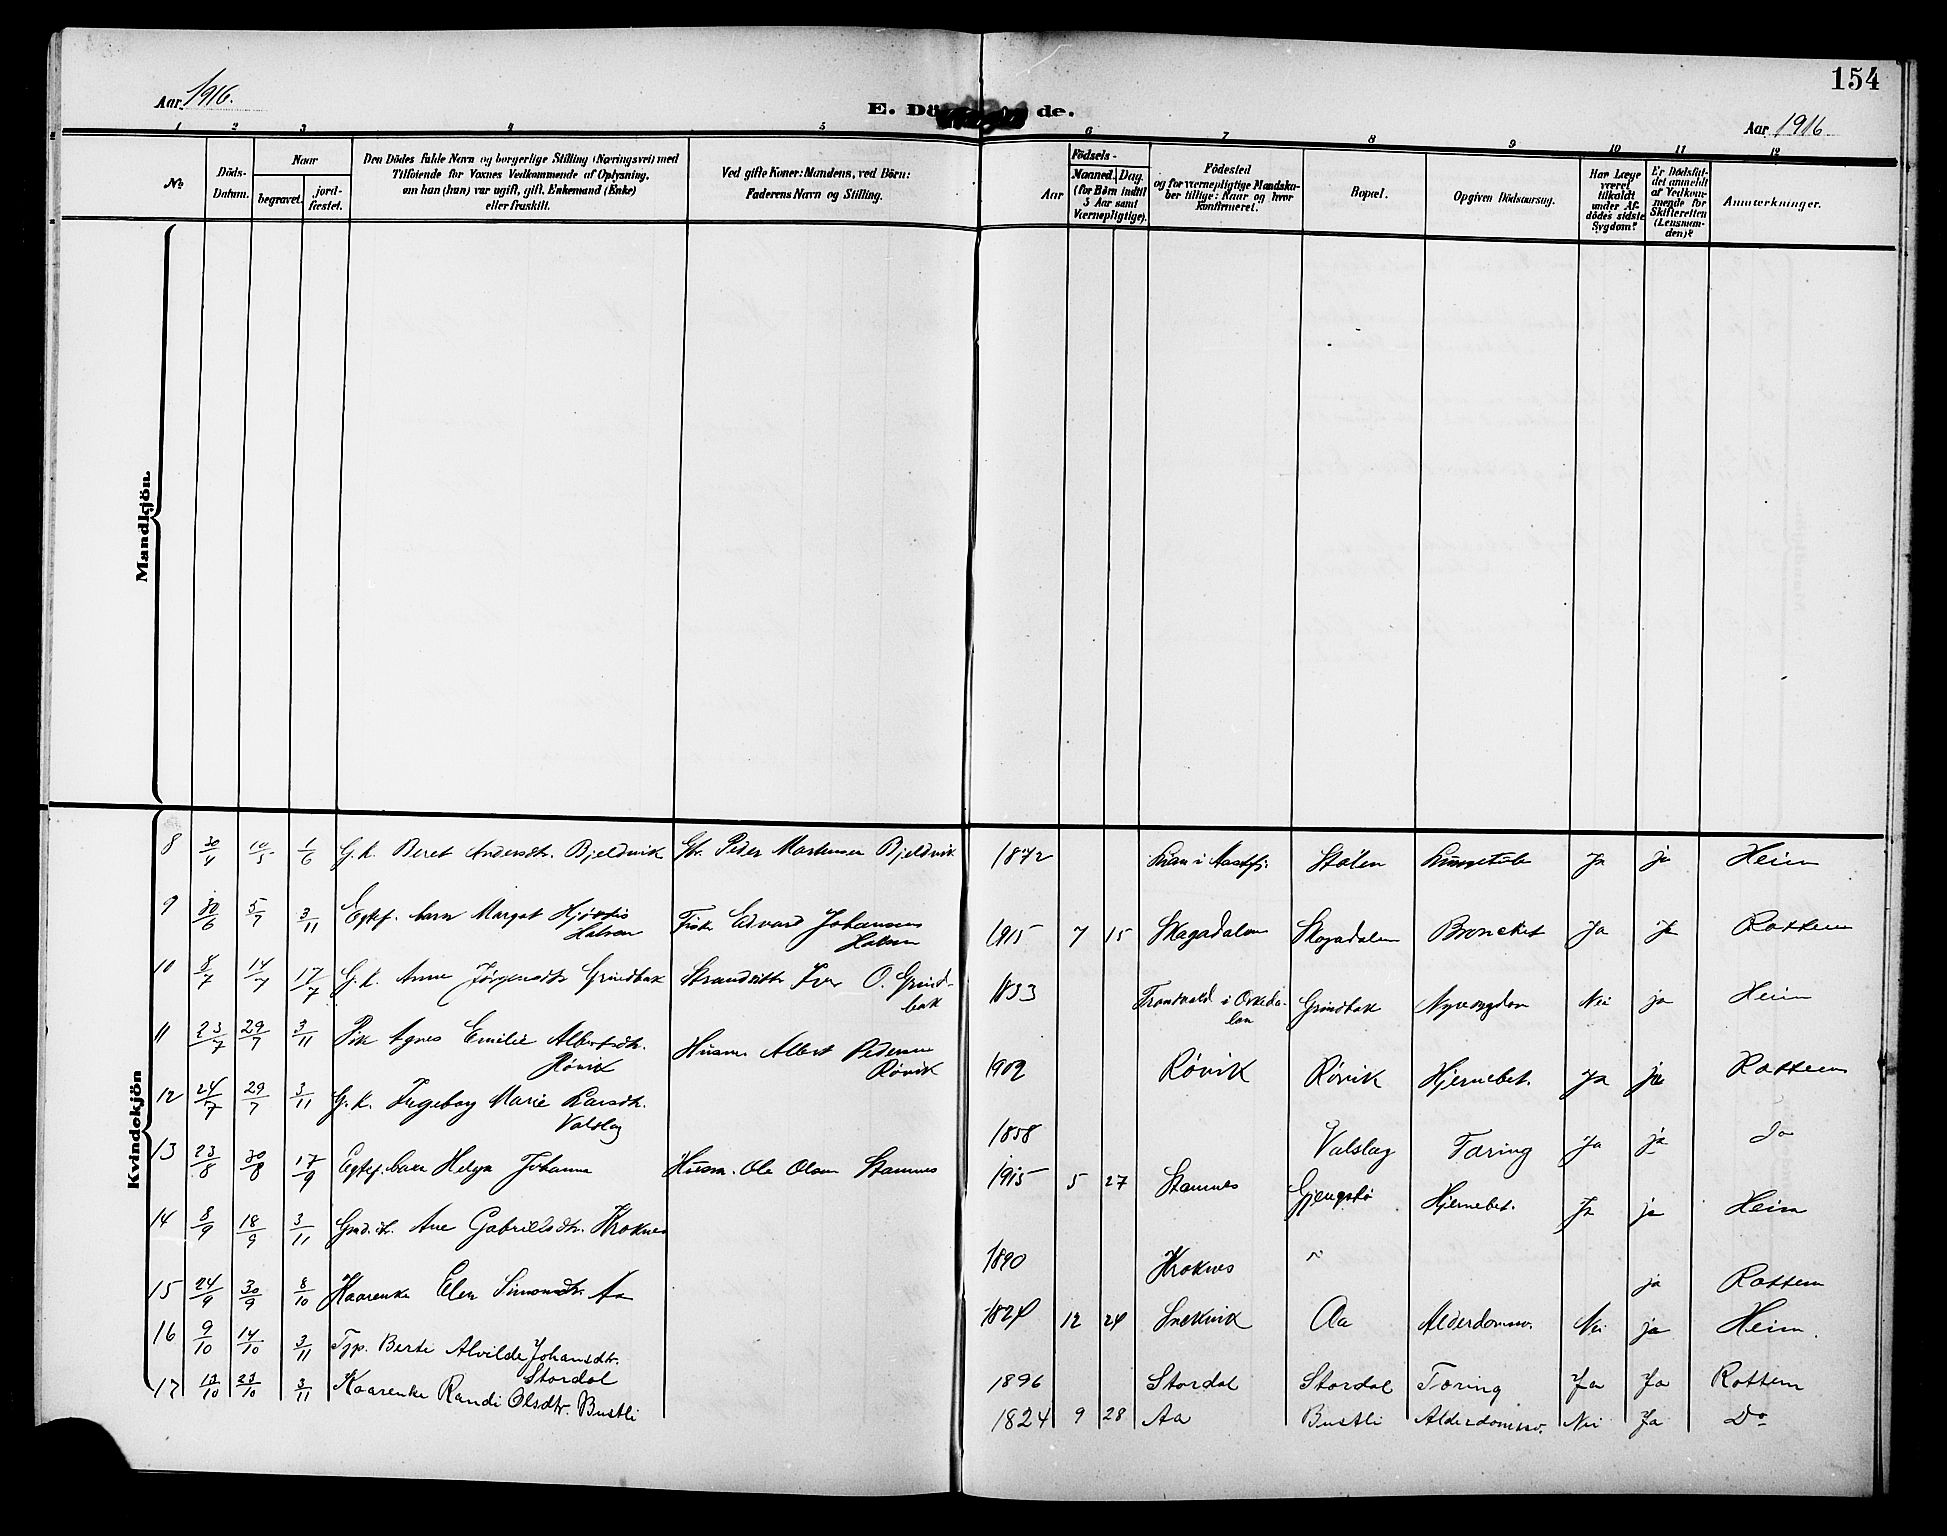 154
Aar 1916.
E. Dö de.
Aar 1916
1 2 3 4 5 6 7 8 9 10 11 12
No
Döds-
Datum.
Naar
begravet.
jord-
fæstet.
Den Dödes fulde Navn og borgerlige Stilling (Næringsvei) med
Tilföiende for Voxnes Vedkommende af Oplysning,
om han (hun) var ugift, gift, Enkemand (Enke)
eller fraskilt.
Ved gifte Koner: Mandens, ved Börn:
Faderens Navn og Stilling.
Födsels-
Aar
Maaned. Dag.
(for Börn indtil
5 Aar samt
Værnepligtige).
Födested
og for værnepligtige Mandska-
ber tillige: Naar og hvor
konfirmeret.
Bopæl.
Opgiven Dödsaarsag.
Har Læge
været
tilkaldt
under Af-
dödes sidste
Sygdom?
Er Dödsfal-
det anmeldt
af Vedkom-
mende for
Skifteretten
(Lensman-
den)?
Anmærkninger.
Mandkjön.
Kvindekjön
8 30/4 10/5 1/6 G.k. Beret Andersdtr. Bjeldnvik Gbr. Peder Mortensen Bjeldnvik 1872 Stølen Ja ja Heim
9 30/6 5/7 3/11 Egtef. barn Margot Hjørdis
Halsen Fisk. Edvard Johansen
Halsen 1915 7 15 Skagadalen Skagadalen Broncket Ja ja Rottem
10 8/7 14/7 17/7 G.k. Anne Jørgensdtr Grindbak Strandsitter Iver O. Grind-
bak 1833 i Orkeda-
len Grindbak Nyresygdom Nei ja Heim
11 23/7 29/7 3/11 Pike Agnes Emilie Albertsdtr.
Røvik Husm. Albert Pedersen
Røvik 1902 Røvik Røvik Hjernebet. Ja ja Rottem
12 24/7 29/7 3/11 G.K. Ingeborg Marie Larsdtr.
Valslag 1858 Valslag Tæring Ja ja do
13 23/8 30/8 17/9 Egtef. barn Helga Johanna Husm. Ole Olsen Stamnes 1915 5 27 Stamnes Gjengstø Hjernebet. Ja ja Heim
14 8/9 18/9 3/11 Ane Gabrielsdtr. Kroknes 1890 Kroknes " ja Rottem
15 24/9 30/9 8/10 Kaarenke Elen Simonsdtr. Aa 1824 12 24 Snekvik Aa Alderdomssv. Nei ja Heim.
16 9/10 14/10 3/11 Tjp. Berte Alvilde Johansdtr.
Stordal 1896 Stordal Stordal Tæring Ja Ja Rottem
17 13/10 23/10 3/11 Kaarenke Randi Olsdtr. Bustli 1824 9 28 Aa Bustli Alderdomssv. Nei Ja Do